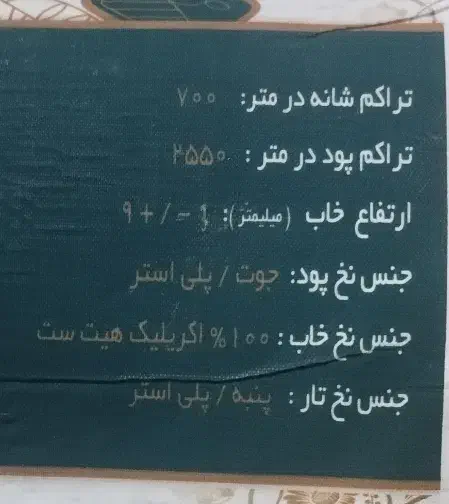 تراکم شانه در متر: ۷۰۰
تراکم پود در متر : ۲۵۵۰
ارتفاع خاب (میلیمتر): ۱ - / + ۹
جنس نخ پود: جوت / پلی استر
جنس نخ خاب: ۱۰۰% اکریلیک هیت ست
جنس نخ تار : پنبه / پلی استر